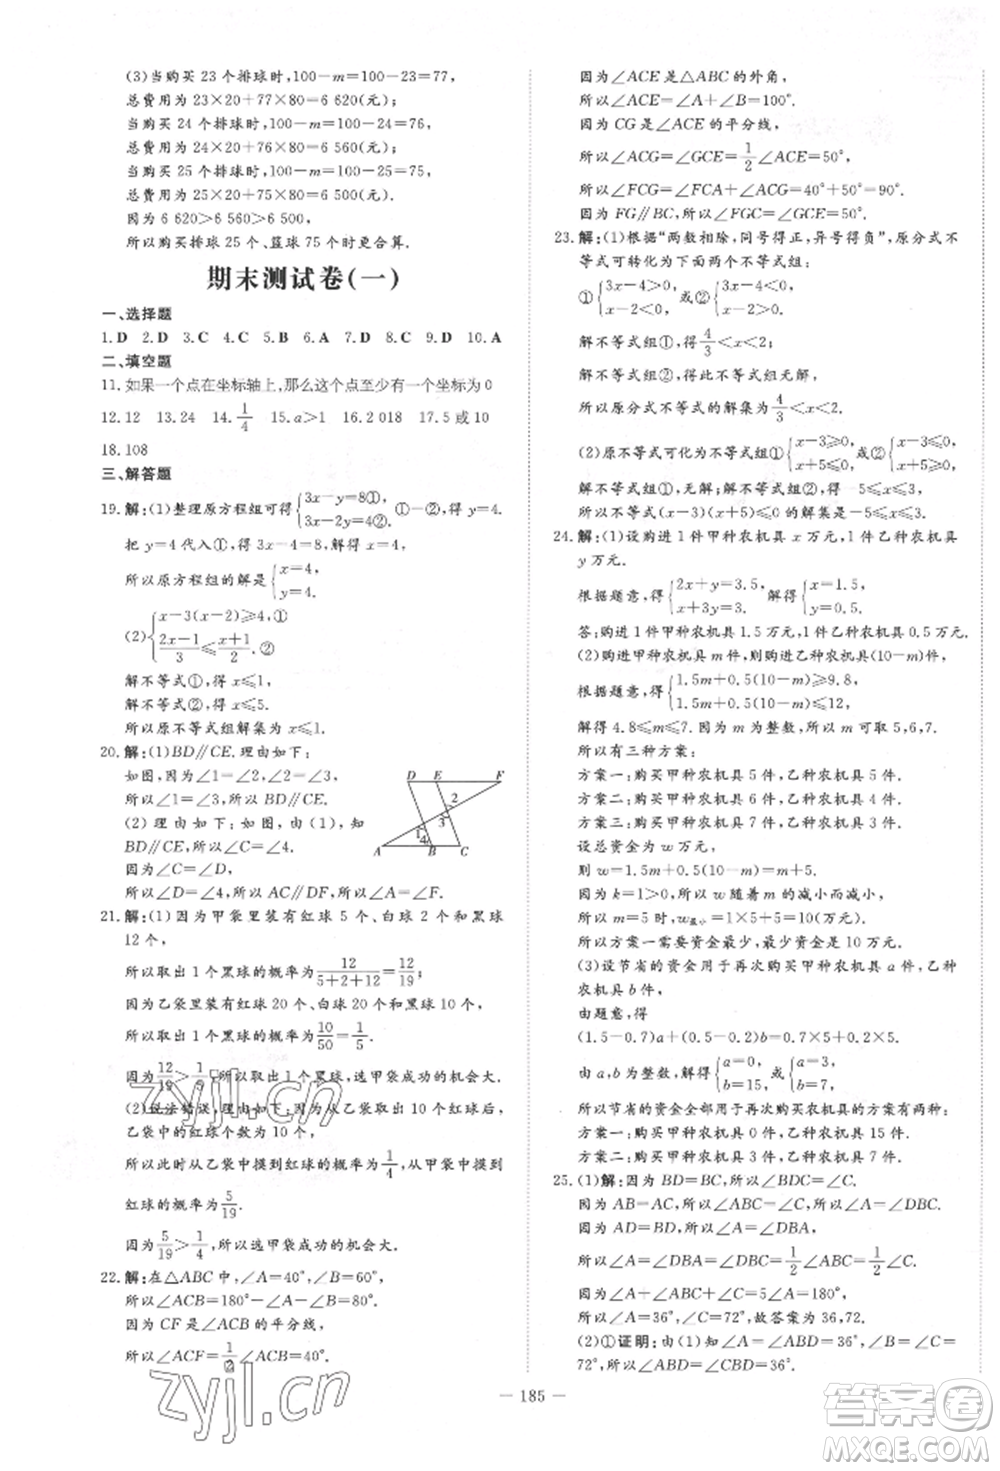 (3)当购买 23 个排球时,100−m=100−23=77,
总费用为 23×20+77×80=6 620(元);
当购买 24 个排球时,100−m=100−24=76,
总费用为 24×20+76×80=6 560(元);
当购买 25 个排球时,100−m=100−25=75,
总费用为 25×20+75×80=6 500(元).
因为 6 620>6 560>6 500,
所以购买排球 25 个、篮球 75 个时更合算.
期末测试卷(一)
一、选择题
1.D 2.D 3.C 4.C 5.B 6.A 7.D 8.C 9.C 10.A
二、填空题
11.如果一个点在坐标轴上,那么这个点至少有一个坐标为 0
12.12 13.24 14.1/4 15.a>1 16.2 018 17.5 或 10
18.108
三、解答题
19.解:(1)整理原方程组可得{3x−y=8①, 3x−2y=4②. ①−②,得 y=4.
把 y=4 代入①,得 3x−4=8,解得 x=4,
所以原方程组的解是{x=4, y=4.
(2){x−3(x−2)≥4,① (2x−1)/3≤(x+1)/2.②
解不等式①,得 x≤1.
解不等式②,得 x≤5.
所以原不等式组解集为 x≤1.
20.解:(1)BD∥CE.理由如下:
如图,因为∠1=∠2,∠2=∠3,
所以∠1=∠3,所以 BD∥CE.
(2)理由如下:如图,由(1),知
BD∥CE,所以∠C=∠4.
因为∠C=∠D,
所以∠D=∠4,所以 AC∥DF,所以∠A=∠F.
D E F
2
3
1
4
A B C
21.解:(1)因为甲袋里装有红球 5 个、白球 2 个和黑球
12 个,
所以取出 1 个黑球的概率为12/(5+2+12)=12/19;
因为乙袋里装有红球 20 个、白球 20 个和黑球 10 个,
所以取出 1 个黑球的概率为10/50=1/5.
因为12/19>1/5,所以取出黑球,选甲袋成功的机会大.
(2)说法错误,理由:因为从乙袋中取出 10 个红球后,
乙袋中的红球个数为 10 个,
所以此时从乙袋中摸到红球的概率为1/4,从甲袋中摸到
红球的概率为5/19.
因为5/19>1/4,所以选甲袋成功的机会大.
22.解:在△ABC 中,∠A=40°,∠B=60°,
所以∠ACB=180°−∠A−∠B=80°.
因为 CF 是∠ACB 的平分线,
所以∠ACF=1/2∠ACB=40°.
因为∠ACE 是△ABC 的外角,
所以∠ACE=∠A+∠B=100°.
因为 CG 是∠ACE 的平分线,
所以∠ACG=∠GCE=1/2∠ACE=50°,
所以∠FCG=∠FCA+∠ACG=40°+50°=90°.
因为 FG∥BC,所以∠FGC=∠GCE=50°.
23.解:(1)根据“两数相除,同号得正,异号得负”,原分式不
等式可转化为下面两个不等式组:
①{3x−4>0, x−2<0, 或②{3x−4<0, x−2>0.
解不等式组①,得4/3<x<2;
解不等式组②,得此不等式组无解,
所以原分式不等式的解集为4/3<x<2.
(2)原不等式可化为不等式组①{x−3≥0, x+5≤0 或②{x−3≤0, x+5≥0.
解不等式组①,无解;解不等式组②,得−5≤x≤3,
所以不等式(x−3)(x+5)≤0 的解集是−5≤x≤3.
24.解:(1)设购进 1 件甲种农机具 x 万元,1 件乙种农机具
y 万元.
根据题意,得{2x+y=3.5, x+3y=3, 解得{x=1.5, y=0.5.
答:购进 1 件甲种农机具 1.5 万元,1 件乙种农机具 0.5 万元.
(2)购进甲种农机具 m 件,则购买乙种农机具(10−m)件,
根据题意,得{1.5m+0.5(10−m)≥9.8, 1.5m+0.5(10−m)≤12,
解得 4.8≤m≤7. 因为 m 为整数,所以 m 可取 5,6,7.
所以有三种方案:
方案一:购买甲种农机具 5 件,乙种农机具 5 件.
方案二:购买甲种农机具 6 件,乙种农机具 4 件.
方案三:购买甲种农机具 7 件,乙种农机具 3 件.
设总资金为 w 万元,
则 w=1.5m+0.5(10−m)=m+5.
因为 k=1>0,所以 w 随着 m 的减小而减小,
所以 m=5 时,w最小=1×5+5=10(万元).
所以方案一需要资金最少,最少资金是 10 万元.
(3)设节省的资金用于再次购买甲种农机具 a 件,乙种
农机具 b 件,
由题意,得
(1.5−0.7)a+(0.5−0.2)b=0.7×5+0.2×5.
因为 a,b 为整数,解得{a=0, b=15, 或{a=3, b=7.
所以节省的资金全部用于再次购买农机具的方案有两种:
方案一:购买甲种农机具 0 件,乙种农机具 15 件.
方案二:购买甲种农机具 3 件,乙种农机具 7 件.
25.(1)解:因为 BD=BC,所以∠BDC=∠C.
因为 AB=AC,所以∠ABC=∠C,
因为 AD=BD,所以∠A=∠DBA,
所以∠A=∠DBA=∠DBC=1/2∠ABC=1/2∠C.
因为∠A+∠ABC+∠C=5∠A=180°,
所以∠A=36°,∠C=72°,故答案为 36,72.
(2)①证明:由(1)知∠A=∠DBA=36°,∠C=
72°,所以∠ABD=∠CBD=36°.
— 185 —
zyjl.cn
zyjl.cn
答案圈
MXQE.COM